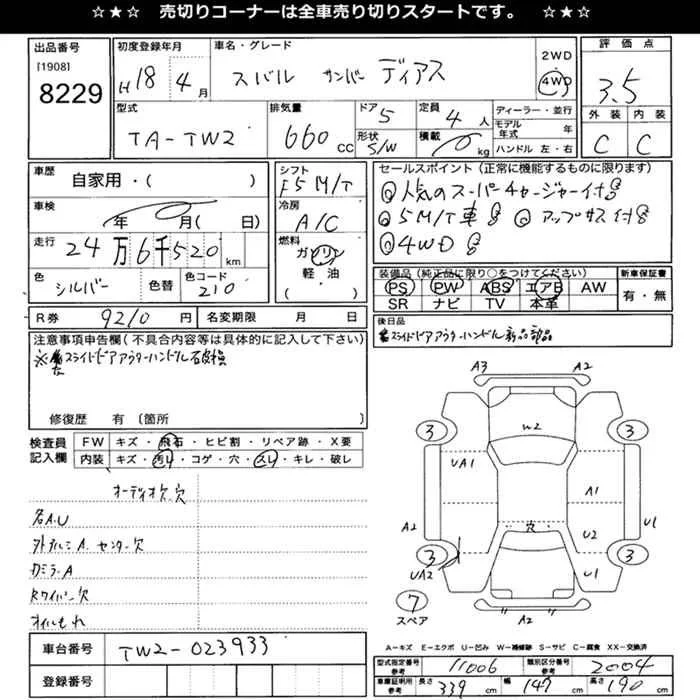 ☆★☆ 売切りコーナーは全車売り切りスタートです。 ☆★☆
出品番号
[1908]
8229
初度登録年月
H18年4月
車名・グレード
スバル サンバー ディアス
2WD
4WD
評価点
3.5
外装 内装
C C
型式
TA-TW2
排気量
660 CC
ドア 5
形状 S/W
定員 4人
積載 kg
ディーラー・並行
モデル年式 年
ハンドル 左・右
車歴
自家用・( )
車検
年 月( 日)
走行
24万6千520km
色 シルバー 色替
色コード 210
シフト
F5M/T
冷房
A/C
燃料
ガソリン
軽油
( )
セールスポイント(正常に機能するものに限ります)
◎人気のスーパーチャージャー付き
◎5M/T車 ◎アップサス付
◎4WD
装備品(純正品に限り○をつけてください)
PS PW ABS エアB AW
SR ナビ TV 本革
新車保証書
有・無
R券 9210円
名変期限 月 日
後日品
スライドドアアウターハンドル新品部品
注意事項申告欄(不具合内容等は具体的に記入して下さい)
※スライドドアアウターハンドル破損
左
修復歴 有(箇所 )
検査員記入欄
FW キズ・飛石・ヒビ割・リペア跡・X要
内装 キズ・汚レ・コゲ・穴・スレ・キレ・破レ
オーディオ欠、穴
各A.U
外ホイルミA.センター欠
カミラーA
Rワイパー欠
オイルもれ
車台番号 TW2-023933
登録番号
A3 A2
3 W2 3
UA1
A1
A2 U1
穴 U2
3 3
UA2 U1
7 スペア
A2
A-キズ E-エクボ U-凹み W-補修跡 S-サビ C-腐食 XX-交換済
型式指定番号 参考 11006 類別区分番号 参考 2004
車庫証明用 参考 長さ 339cm 幅 147cm 高さ 190cm